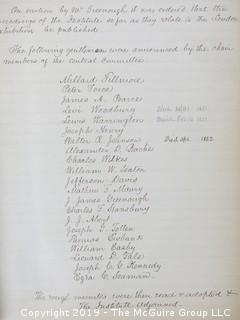 On motion by Mr Greenough it was ordered that the
proceedings of the Institute so far as they relate to the London
Exhibition be published.
The following gentlemen were announced by the chair
members of the central committee
Millard Fillmore
Peter Force
James A. Pearce
Levi Woodbury
Lewis Warrington
Joseph Henry
Walter R. Johnson Died Apr. 1852
Alexander D. Bache
Charles Wilkes
William W. Seaton
Jefferson Davis
Mathew F. Maury
J. James Greenough
Charles F. Stansbury
J. J. Abert
Joseph G. Totten
Thomas Ewbank
William Easby
Leonard D. Gale
Joseph C. G. Kennedy
Ezra C. Seaman
The rough minutes were then read & adopted &
The Institute adjourned.
BarnCat Surprises.com
Copyright 2019 - The McGuire Group LLC